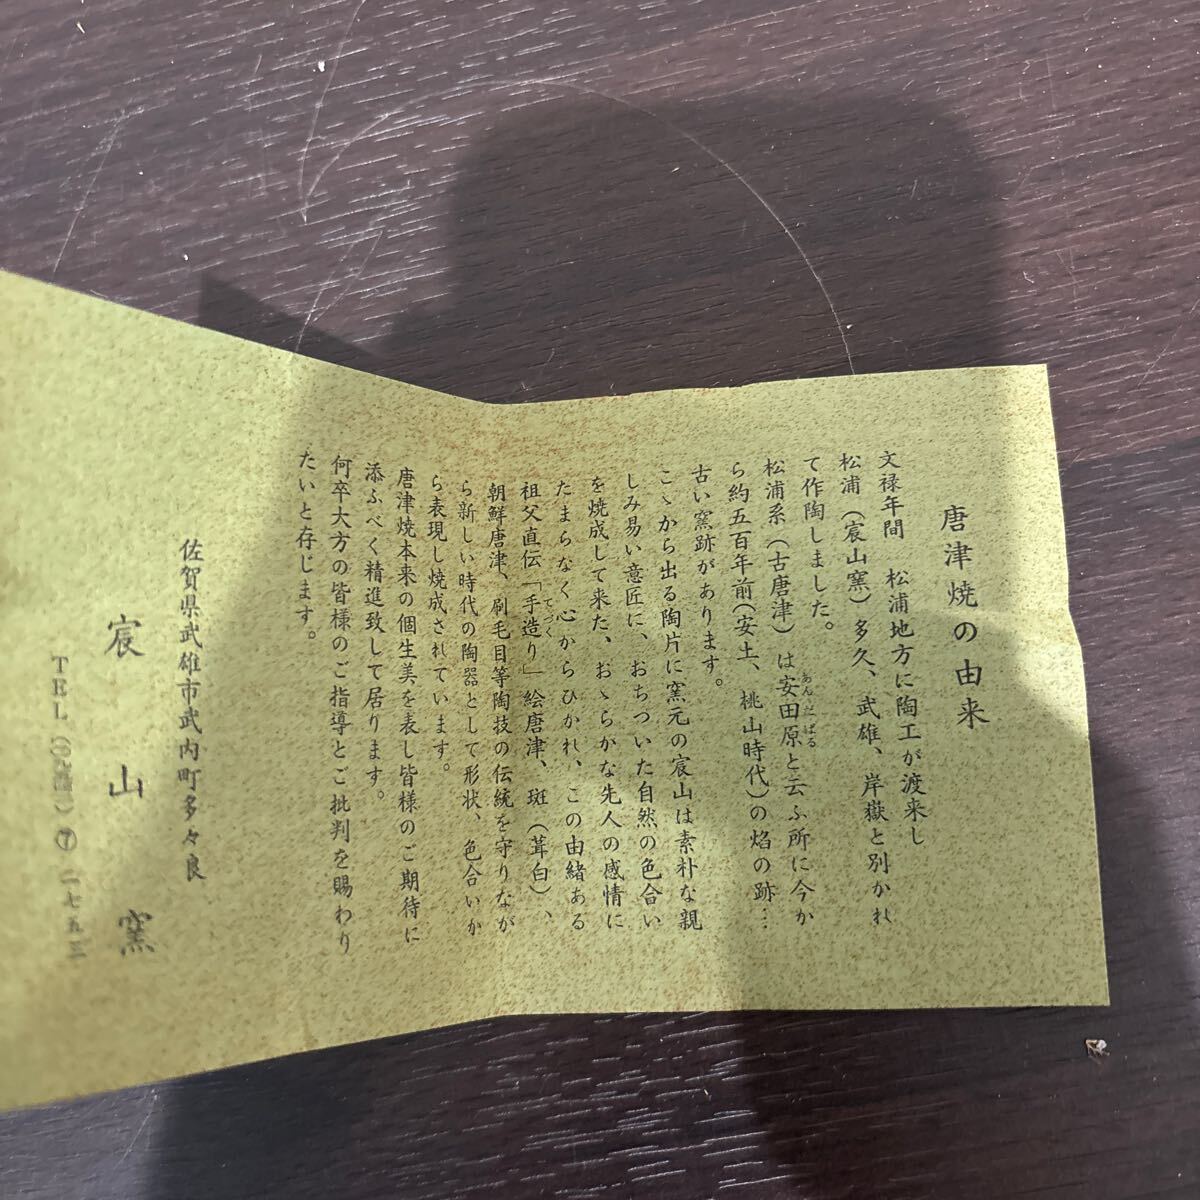 唐津焼の由来
文禄年間　松浦地方に陶工が渡来し
松浦（宸山窯）多久、武雄、岸嶽と別かれ
て作陶しました。
松浦系（古唐津）は安田原と云ふ所に今か
あんだばる
ら約五百年前（安土、桃山時代）の焰の跡…
古い窯跡があります。
こゝから出る陶片に窯元の宸山は素朴な親
しみ易い意匠に、おちついた自然の色合い
を焼成して来た、おゝらかな先人の感情に
たまらなく心からひかれ、この由緒ある
祖父直伝「手造り」絵唐津、斑（茸白）、
てづく
朝鮮唐津、刷毛目等陶技の伝統を守りなが
ら新しい時代の陶器として形状、色合いか
ら表現し焼成されています。
唐津焼本来の個生美を表し皆様のご期待に
添ふべく精進致して居ります。
何卒大方の皆様のご指導とご批判を賜わり
たいと存じます。
佐賀県武雄市武内町多々良
宸山窯
TEL 二七五三